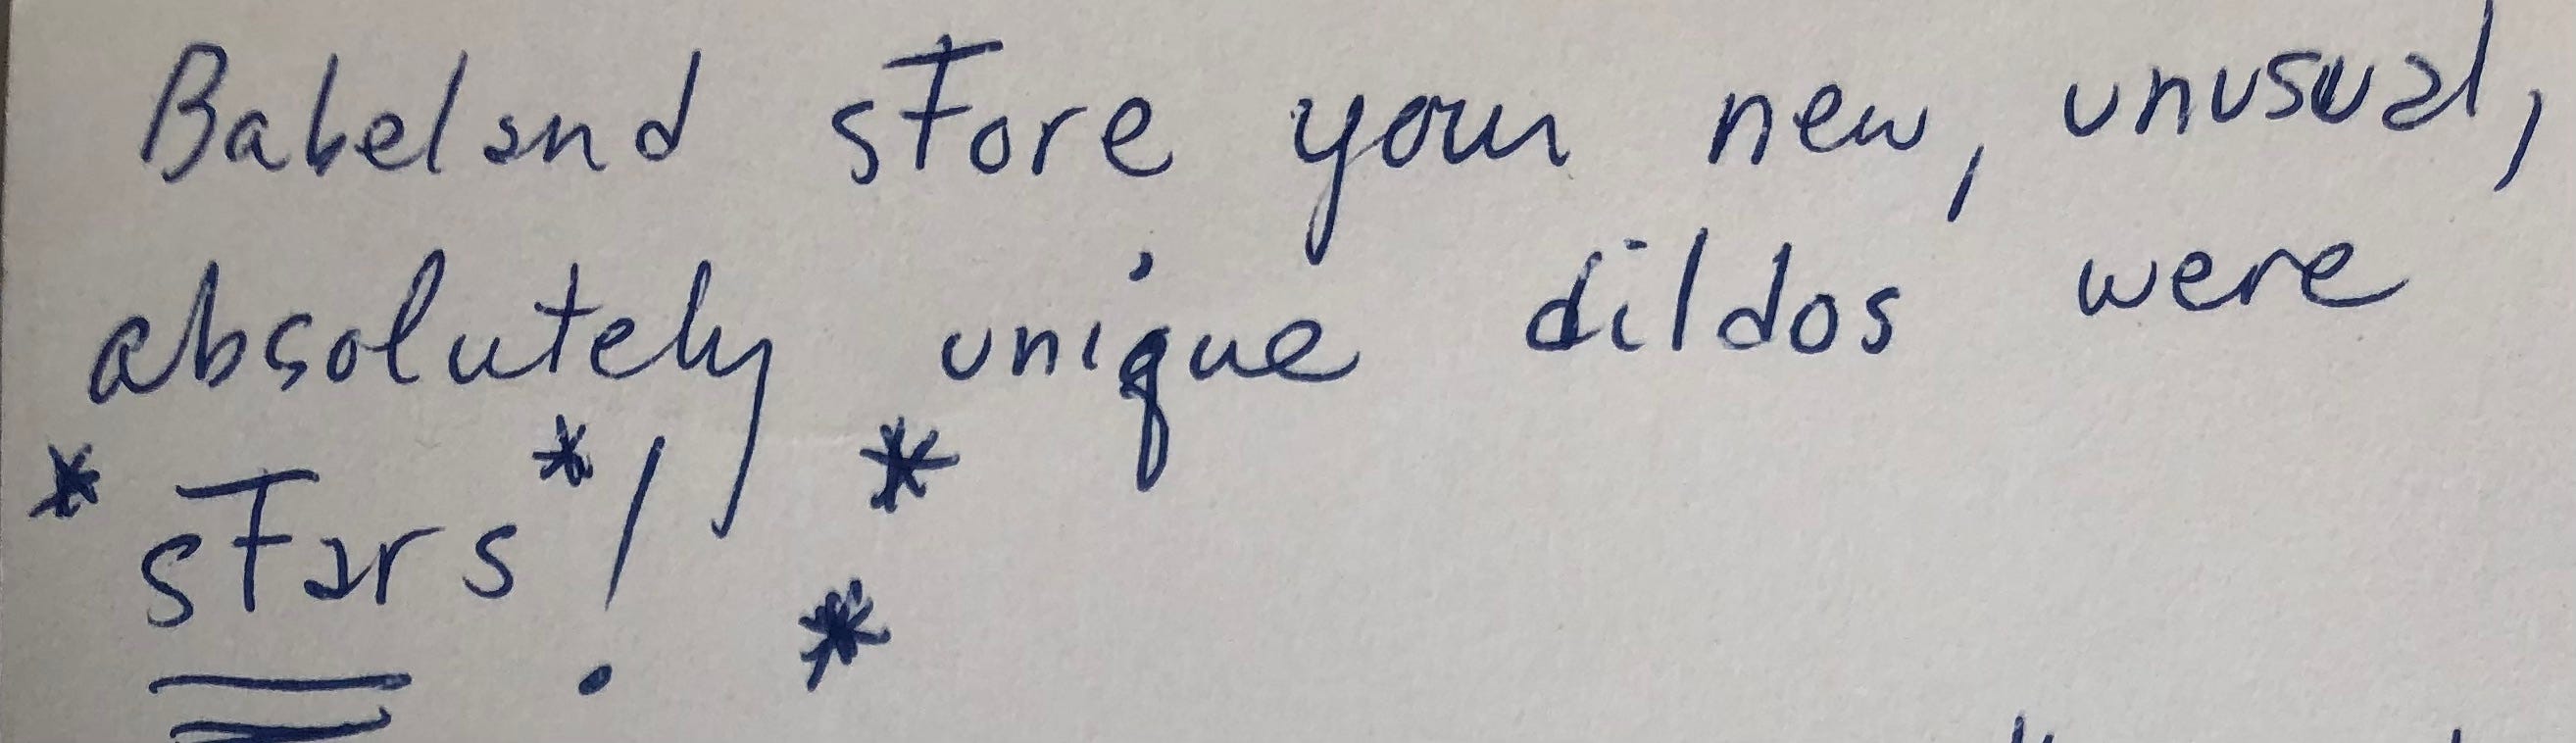 Babeland store your new, unusual,
absolutely unique dildos were
* stars *! *
*